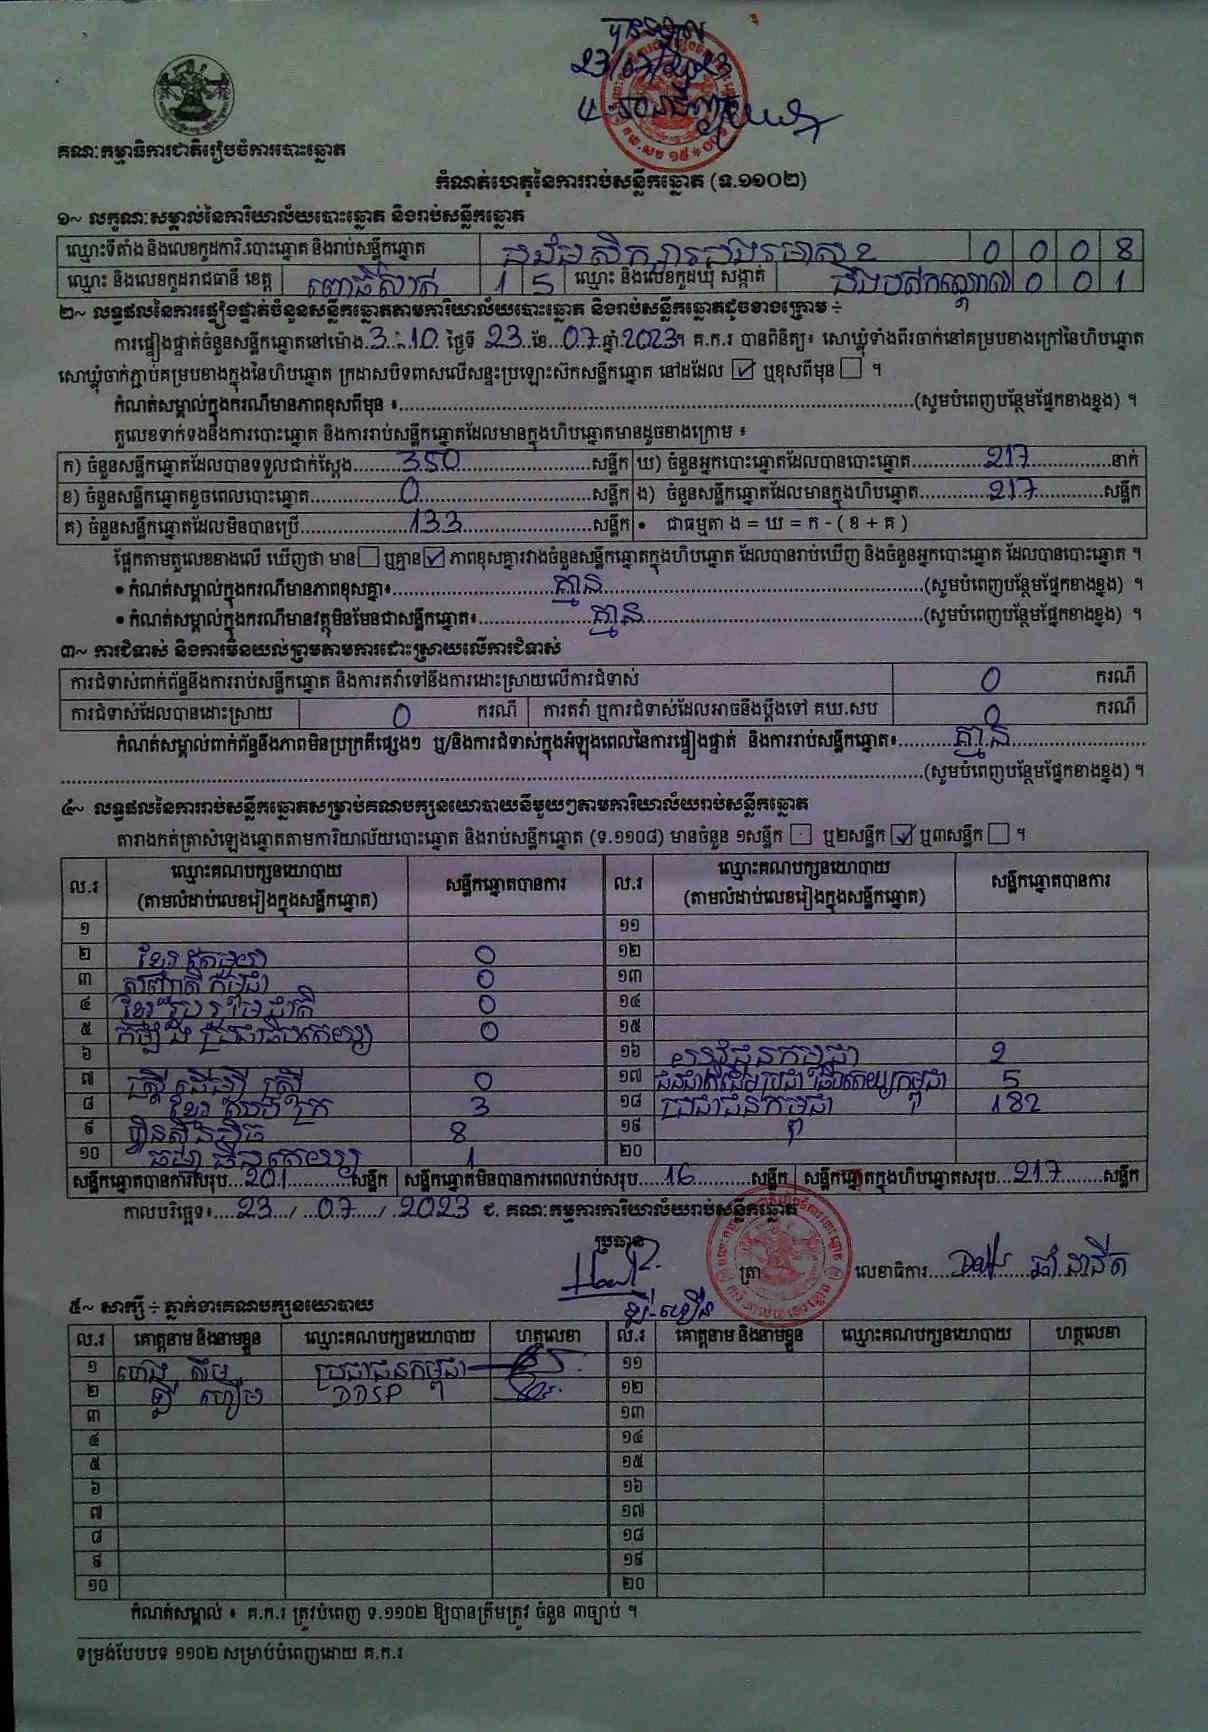 បានទទួល
23/07/2023
គណៈកម្មាធិការជាតិរៀបចំការបោះឆ្នោត
កំណត់ហេតុនៃការរាប់សន្លឹកឆ្នោត (ទ.១១០២)
១~ លក្ខណៈសម្គាល់នៃការិយាល័យបោះឆ្នោត និងរាប់សន្លឹកឆ្នោត
ឈ្មោះទីតាំង និងលេខកូដការិ.បោះឆ្នោត និងរាប់សន្លឹកឆ្នោត 0 0 0 8
ឈ្មោះ និងលេខកូដរាជធានី ខេត្ត ពោធិ៍សាត់ 1 5 ឈ្មោះ និងលេខកូដឃុំ សង្កាត់ 0 0 1
២~ លទ្ធផលនៃការផ្ទៀងផ្ទាត់ចំនួនសន្លឹកឆ្នោតតាមការិយាល័យបោះឆ្នោត និងរាប់សន្លឹកឆ្នោតដូចខាងក្រោម ÷
ការផ្ទៀងផ្ទាត់ចំនួនសន្លឹកឆ្នោតនៅម៉ោង 3:10 ថ្ងៃទី 23 ខែ 07 ឆ្នាំ 2023។ គ.ក.រ បានពិនិត្យ៖ សោឃ្លុំទាំងពីរចាក់នៅគម្របខាងក្រៅនៃហិបឆ្នោត
សោឃ្លុំចាក់ភ្ជាប់គម្របខាងក្នុងនៃហិបឆ្នោត ក្រដាសបិទពាសលើសន្ទះប្រឡោះស៊កសន្លឹកឆ្នោត នៅដដែល ☑ ឬខុសពីមុន ☐ ។
កំណត់សម្គាល់ក្នុងករណីមានភាពខុសពីមុន ៖ (សូមបំពេញបន្ថែមផ្នែកខាងខ្នង) ។
តួលេខទាក់ទងនឹងការបោះឆ្នោត និងការរាប់សន្លឹកឆ្នោតដែលមានក្នុងហិបឆ្នោតមានដូចខាងក្រោម ៖
ក) ចំនួនសន្លឹកឆ្នោតដែលបានទទួលជាក់ស្តែង 350 សន្លឹក ឃ) ចំនួនអ្នកបោះឆ្នោតដែលបានបោះឆ្នោត 217 នាក់
ខ) ចំនួនសន្លឹកឆ្នោតខូចពេលបោះឆ្នោត 0 សន្លឹក ង) ចំនួនសន្លឹកឆ្នោតដែលមានក្នុងហិបឆ្នោត 217 សន្លឹក
គ) ចំនួនសន្លឹកឆ្នោតដែលមិនបានប្រើ 133 សន្លឹក • ជាធម្មតា ង = ឃ = ក - ( ខ + គ )
ផ្អែកតាមតួលេខខាងលើ ឃើញថា មាន ☐ ឬគ្មាន ☑ ភាពខុសគ្នារវាងចំនួនសន្លឹកឆ្នោតក្នុងហិបឆ្នោត ដែលបានរាប់ឃើញ និងចំនួនអ្នកបោះឆ្នោត ដែលបានបោះឆ្នោត ។
• កំណត់សម្គាល់ក្នុងករណីមានភាពខុសគ្នា៖ គ្មាន (សូមបំពេញបន្ថែមផ្នែកខាងខ្នង) ។
• កំណត់សម្គាល់ក្នុងករណីមានវត្ថុមិនមែនជាសន្លឹកឆ្នោត៖ គ្មាន (សូមបំពេញបន្ថែមផ្នែកខាងខ្នង) ។
៣~ ការជំទាស់ និងការមិនយល់ព្រមតាមការដោះស្រាយលើការជំទាស់
ការជំទាស់ពាក់ព័ន្ធនឹងការរាប់សន្លឹកឆ្នោត និងការតវ៉ាទៅនឹងការដោះស្រាយលើការជំទាស់ 0 ករណី
ការជំទាស់ដែលបានដោះស្រាយ 0 ករណី ការតវ៉ា ឬការជំទាស់ដែលអាចនឹងប្តឹងទៅ គឃ.សប 0 ករណី
កំណត់សម្គាល់ពាក់ព័ន្ធនឹងភាពមិនប្រក្រតីផ្សេងៗ ឬ/និងការជំទាស់ក្នុងអំឡុងពេលនៃការផ្ទៀងផ្ទាត់ និងការរាប់សន្លឹកឆ្នោត៖ គ្មាន
(សូមបំពេញបន្ថែមផ្នែកខាងខ្នង) ។
៤~ លទ្ធផលនៃការរាប់សន្លឹកឆ្នោតសម្រាប់គណបក្សនយោបាយនីមួយៗតាមការិយាល័យរាប់សន្លឹកឆ្នោត
តារាងកត់ត្រាសំឡេងឆ្នោតតាមការិយាល័យបោះឆ្នោត និងរាប់សន្លឹកឆ្នោត (ទ.១១០៨) មានចំនួន ១សន្លឹក ☐ ឬ២សន្លឹក ☑ ឬ៣សន្លឹក ☐ ។
ល.រ ឈ្មោះគណបក្សនយោបាយ (តាមលំដាប់លេខរៀងក្នុងសន្លឹកឆ្នោត) សន្លឹកឆ្នោតបានការ ល.រ ឈ្មោះគណបក្សនយោបាយ (តាមលំដាប់លេខរៀងក្នុងសន្លឹកឆ្នោត) សន្លឹកឆ្នោតបានការ
១ ១១
២ ខ្មែរឥតមួយ 0 ១២
៣ សញ្ជាតិកម្ពុជា 0 ១៣
៤ ខ្មែររួបរួមជាតិ 0 ១៤
៥ កម្ពុជា ប្រជាធិបតេយ្យ 0 ១៥
៦ ១៦ យុវជនកម្ពុជា 2
៧ ស្ត្រី ដើម្បី ស្ត្រី 0 ១៧ ជនជាតិដើមប្រជាធិបតេយ្យកម្ពុជា 5
៨ 3 ១៨ ប្រជាជនកម្ពុជា 182
៩ ហ៊្វុនស៊ិនប៉ិច 8 ១៩
១០ ធម្មាធិបតេយ្យ 1 ២០
សន្លឹកឆ្នោតបានការសរុប 201 សន្លឹក សន្លឹកឆ្នោតមិនបានការពេលរាប់សរុប 16 សន្លឹក សន្លឹកឆ្នោតក្នុងហិបឆ្នោតសរុប 217 សន្លឹក
កាលបរិច្ឆេទ៖ 23 / 07 / 2023 ជ. គណៈកម្មការការិយាល័យរាប់សន្លឹកឆ្នោត
ប្រធាន
ត្រា លេខាធិការ
៥~ សាក្សី ÷ ភ្នាក់ងារគណបក្សនយោបាយ
ល.រ គោត្តនាម និងនាមខ្លួន ឈ្មោះគណបក្សនយោបាយ ហត្ថលេខា ល.រ គោត្តនាម និងនាមខ្លួន ឈ្មោះគណបក្សនយោបាយ ហត្ថលេខា
១ ប្រជាជនកម្ពុជា ១១
២ ១២
៣ ១៣
៤ ១៤
៥ ១៥
៦ ១៦
៧ ១៧
៨ ១៨
៩ ១៩
១០ ២០
កំណត់សម្គាល់ ៖ គ.ក.រ ត្រូវបំពេញ ទ.១១០២ ឱ្យបានត្រឹមត្រូវ ចំនួន ៣ច្បាប់ ។
ទម្រង់បែបបទ ១១០២ សម្រាប់បំពេញដោយ គ.ក.រ